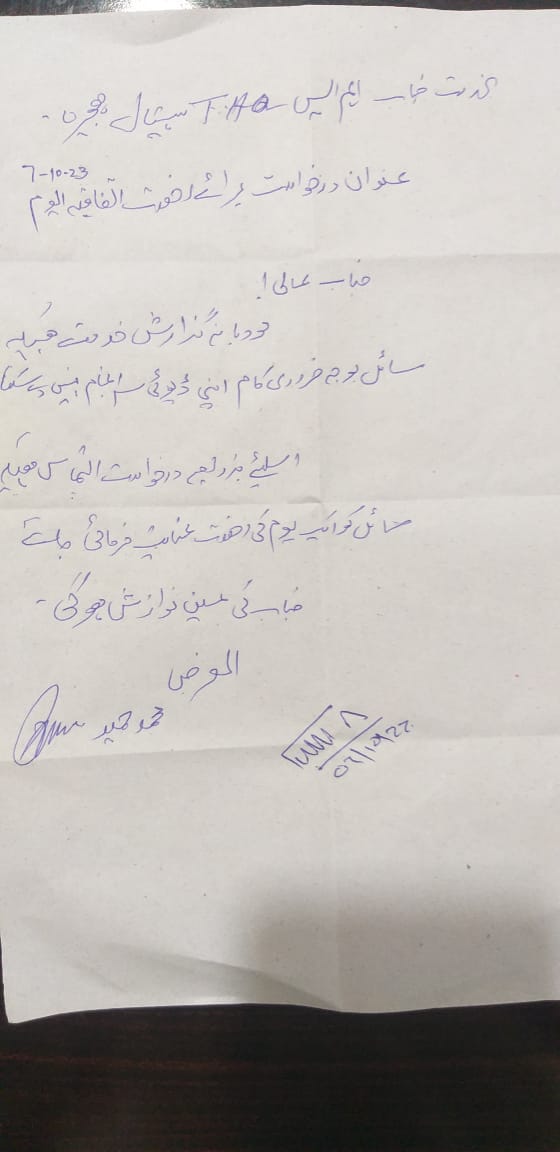 بخدمت جناب ایم ایس THQ ہسپتال ہجیرہ -
7-10-23
عنوان درخواست برائے رخصت اتفاقیہ الیوم
جناب عالی!
مودبانہ گذارش خدمت ہیکہ
سائل بوجہ ضروری کام اپنی ڈیوٹی سرانجام نہیں دے سکتا
اسلئے بذریعہ درخواست التماس ہیکہ
سائل کو ایک یوم کی رخصت عنایت فرمائی جائے
جناب کی عین نوازش ہوگی -
العارض
محمد حمید